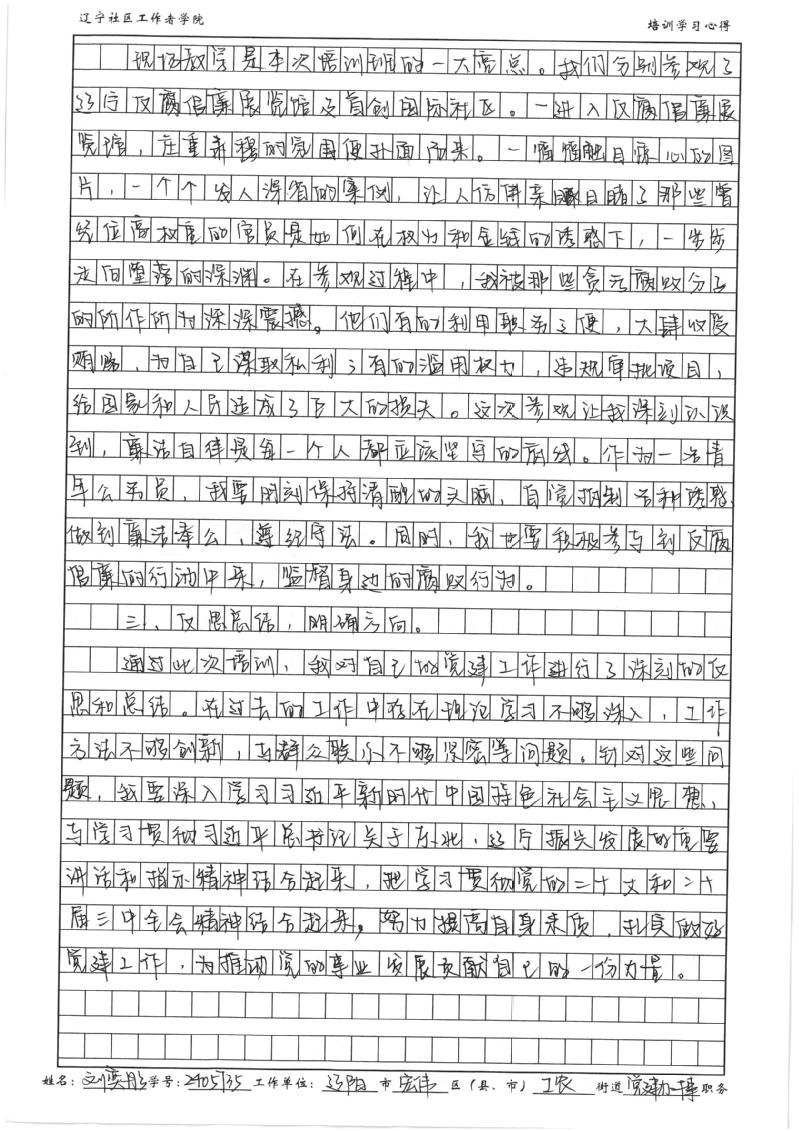 辽宁社区工作者学院 培训学习心得
现场教学是本次培训班的一大亮点。我们分别参观了
辽宁反腐倡廉展览馆及首创国际社区。一进入反腐倡廉展
览馆，庄重肃穆的氛围便扑面而来。一幅幅触目惊心的图
片，一个个发人深省的案例，让人仿佛亲眼目睹了那些曾
经位高权重的官员是如何在权力和金钱的诱惑下，一步步
走向堕落的深渊。在参观过程中，我被那些贪污腐败分子
的所作所为深深震撼。他们有的利用职务之便，大肆收受
贿赂，为自己谋取私利；有的滥用权力，违规审批项目，
给国家和人民造成了巨大的损失。这次参观让我深刻认识
到，廉洁自律是每一个人都应该坚守的底线。作为一名青
年公务员，我要时刻保持清醒的头脑，自觉抵制各种诱惑，
做到廉洁奉公，遵纪守法。同时，我也要积极参与到反腐
倡廉的行动中来，监督身边的腐败行为。
三、反思总结，明确方向。
通过此次培训，我对自己的党建工作进行了深刻的反
思和总结。在过去的工作中存在理论学习不够深入，工作
方法不够创新，与群众联系不够紧密等问题。针对这些问
题，我要深入学习习近平新时代中国特色社会主义思想，
与学习贯彻习近平总书记关于东北、辽宁振兴发展的重要
讲话和指示精神结合起来，把学习贯彻党的二十大和二十
届三中全会精神结合起来。努力提高自身素质，扎实做好
党建工作，为推动党的事业发展贡献自己的一份力量。
姓名：刘奕彤 学号：2405735 工作单位：辽阳 市 宏伟 区（县、市） 工农 街道 党建 职务